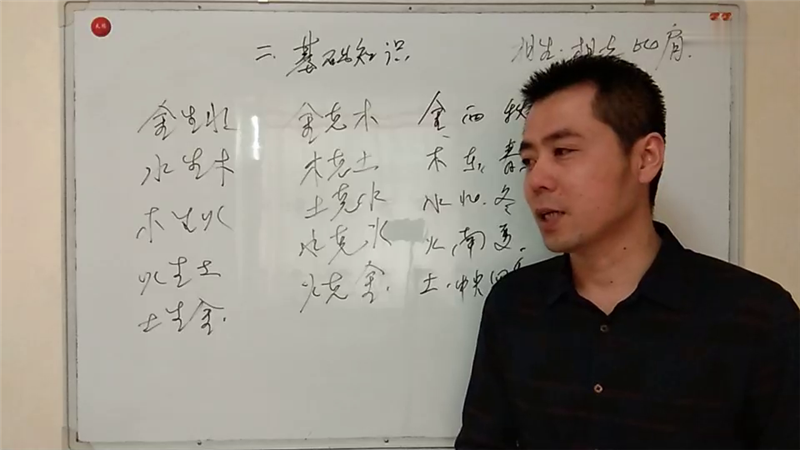 二.基础知识 相生.相克 比肩.
金生水 金克木 金.西 秋
水生木 木克土 木 东.春
木生火 土克水 水 北.冬
火生土 水克火 火 南 夏.
土生金. 火克金. 土.中央四